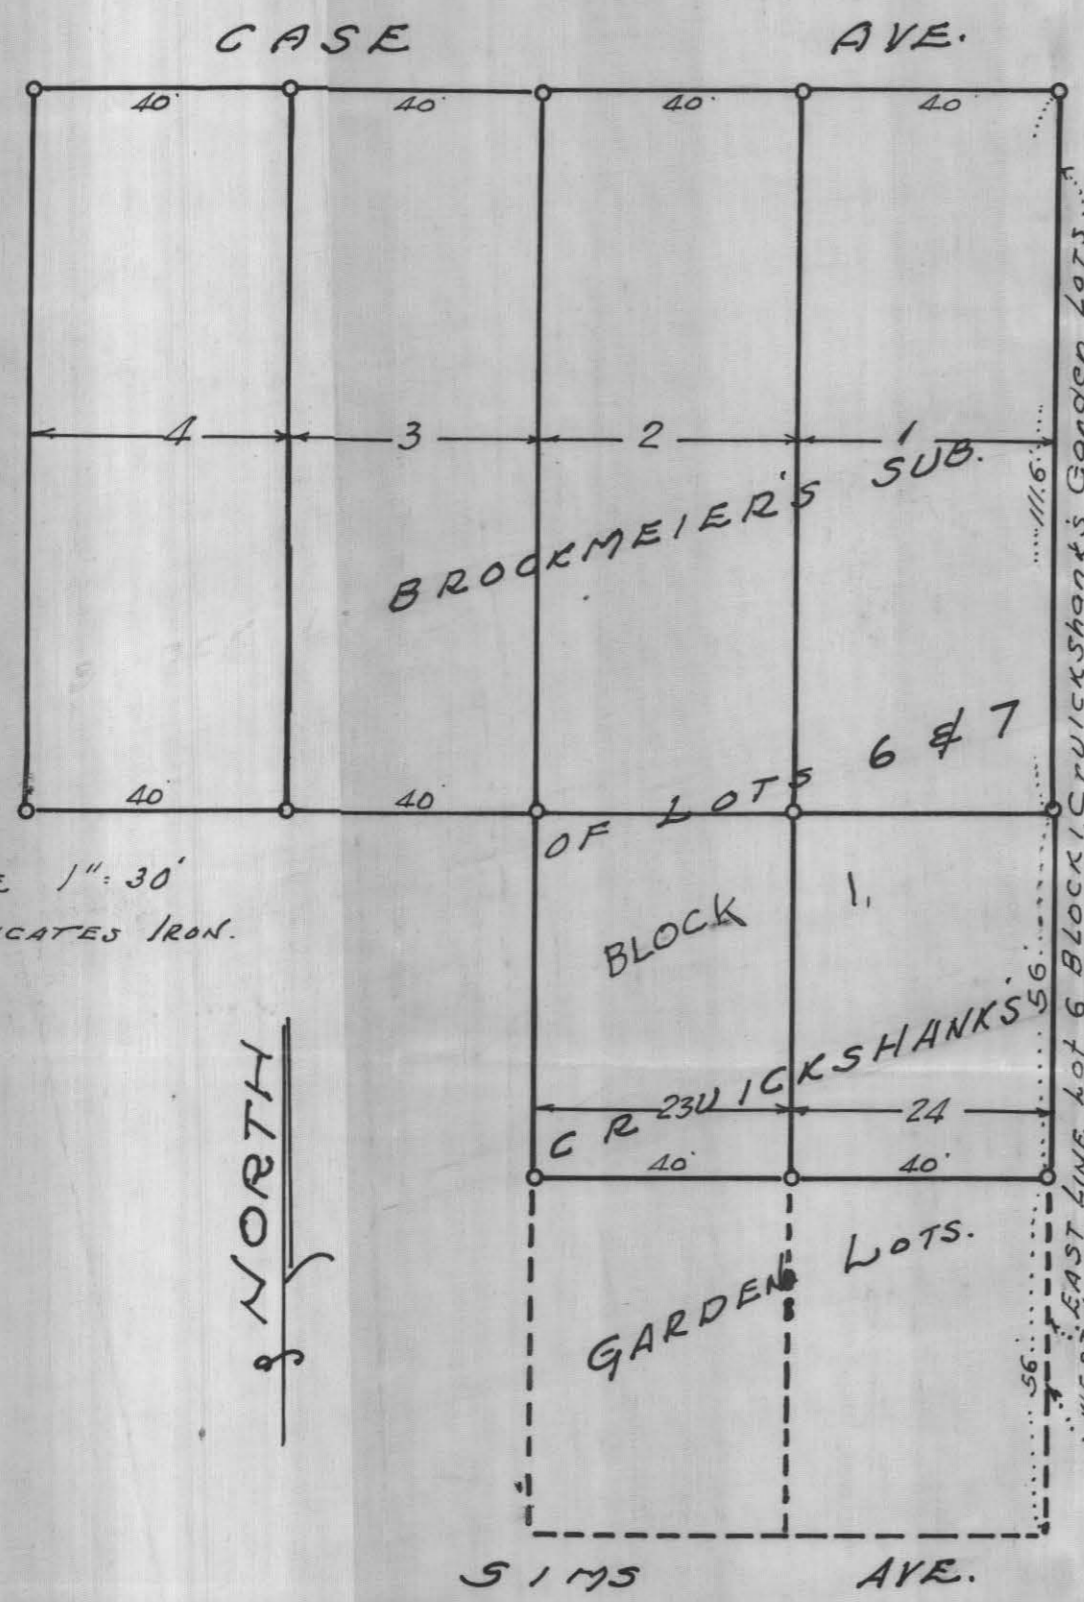 CASE AVE.
40' 40' 40' 40'
4 3 2 1
BROCKMEIER'S SUB.
111.6
OF LOTS 6 & 7
40' 40'
1" = 30'
IRON.
BLOCK 1,
56
CRUICKSHANKS'
23 24
40' 40'
NORTH
GARDEN LOTS.
56
EAST LINE Lot 6 BLOCK 1 CruickShank's Garden LOTS
SIMS AVE.